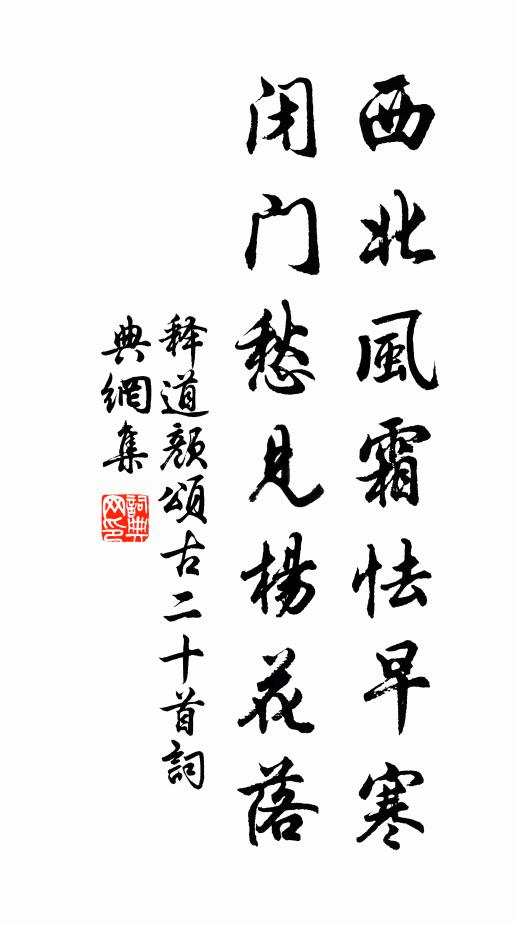 西北風霜怯早寒
闭门愁见楊花落
释道颜頌古二十首詞
典網集
詞典
网印